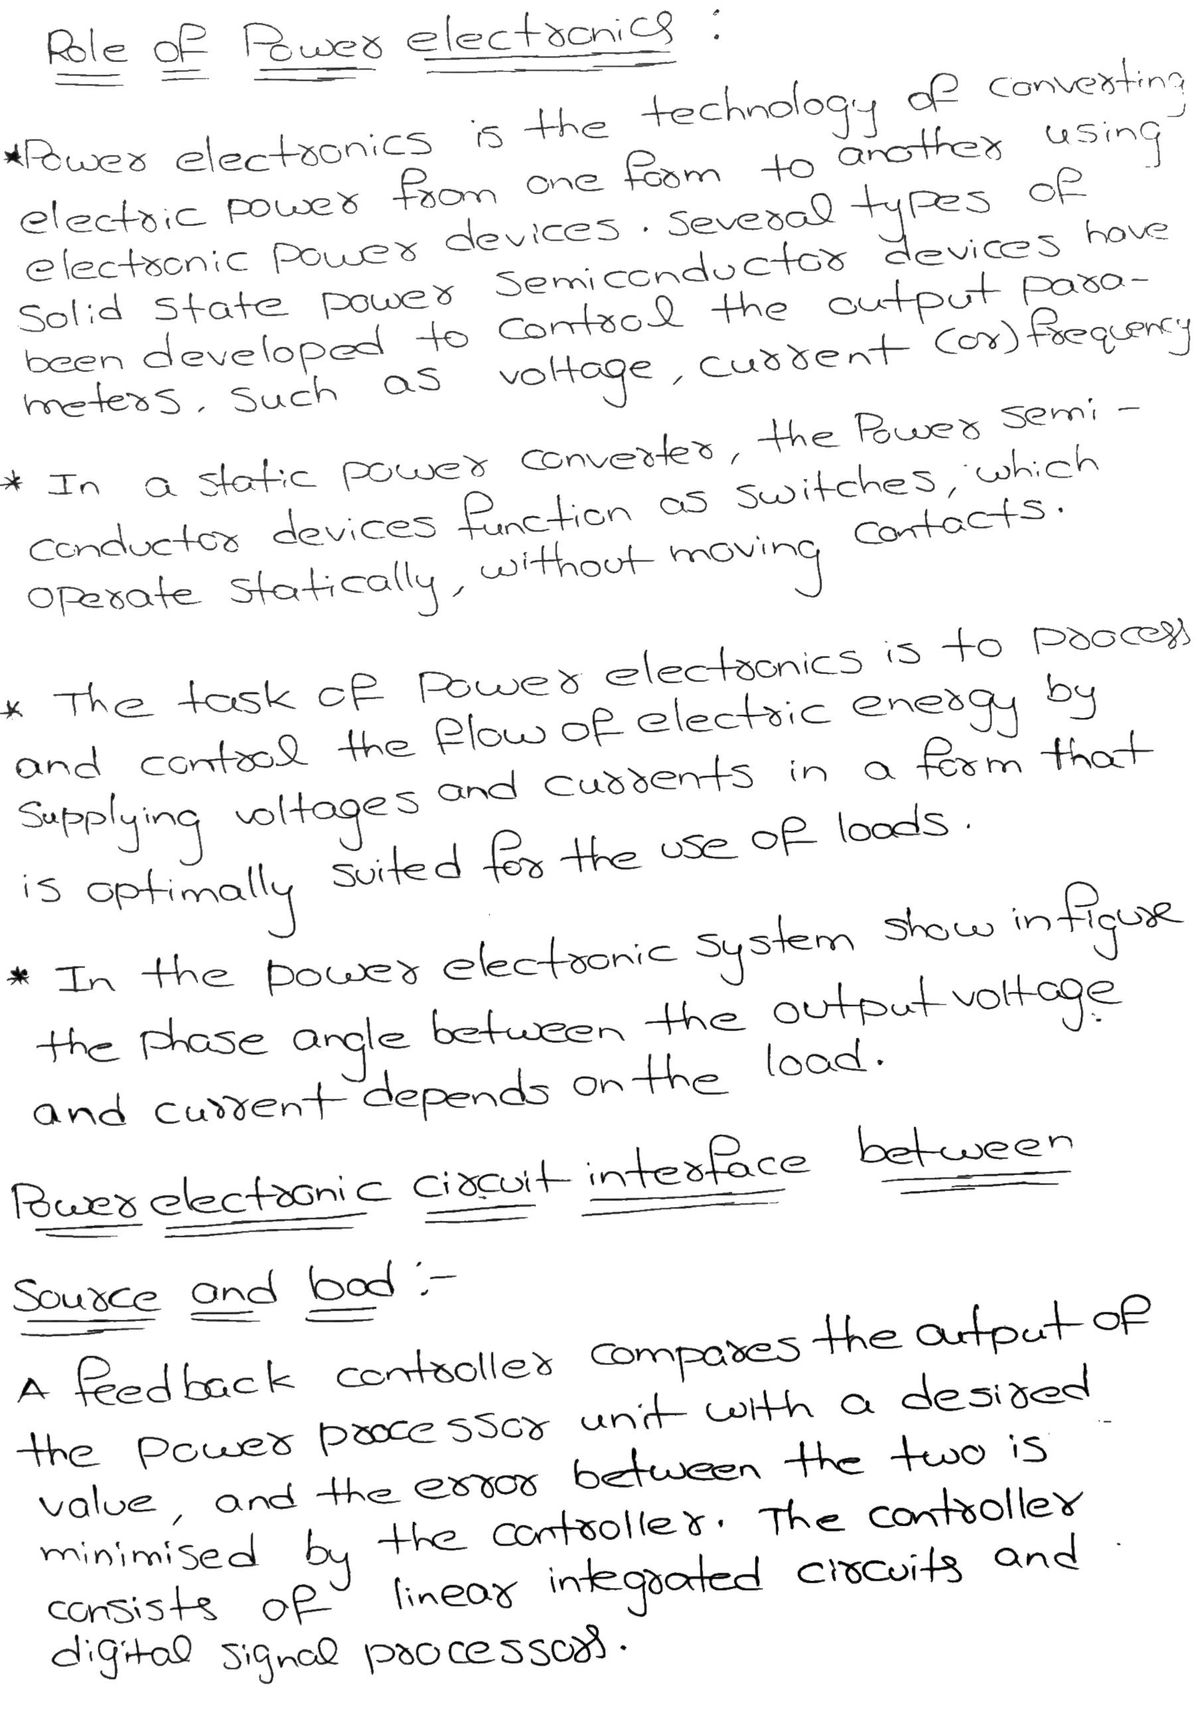 Role of Power electronics :
*Power electronics is the technology of converting
electric power from one form to another using
electronic power devices. Several types of
Solid State power semiconductor devices have
been developed to control the output para-
meters, Such as voltage, current (or) frequency
* In a static power converter, the Power semi-
conductor devices function as switches, which
operate statically, without moving contacts.
* The task of Power electronics is to process
and control the flow of electric energy by
Supplying voltages and currents in a form that
is optimally suited for the use of loads.
* In the power electronic system show in figure
the phase angle between the output voltage
and current depends on the load.
Power electronic circuit interface between
Source and load :-
A feedback controller compares the output of
the power processor unit with a desired
value, and the error between the two is
minimised by the controller. The controller
consists of linear integrated circuits and
digital signal processors.